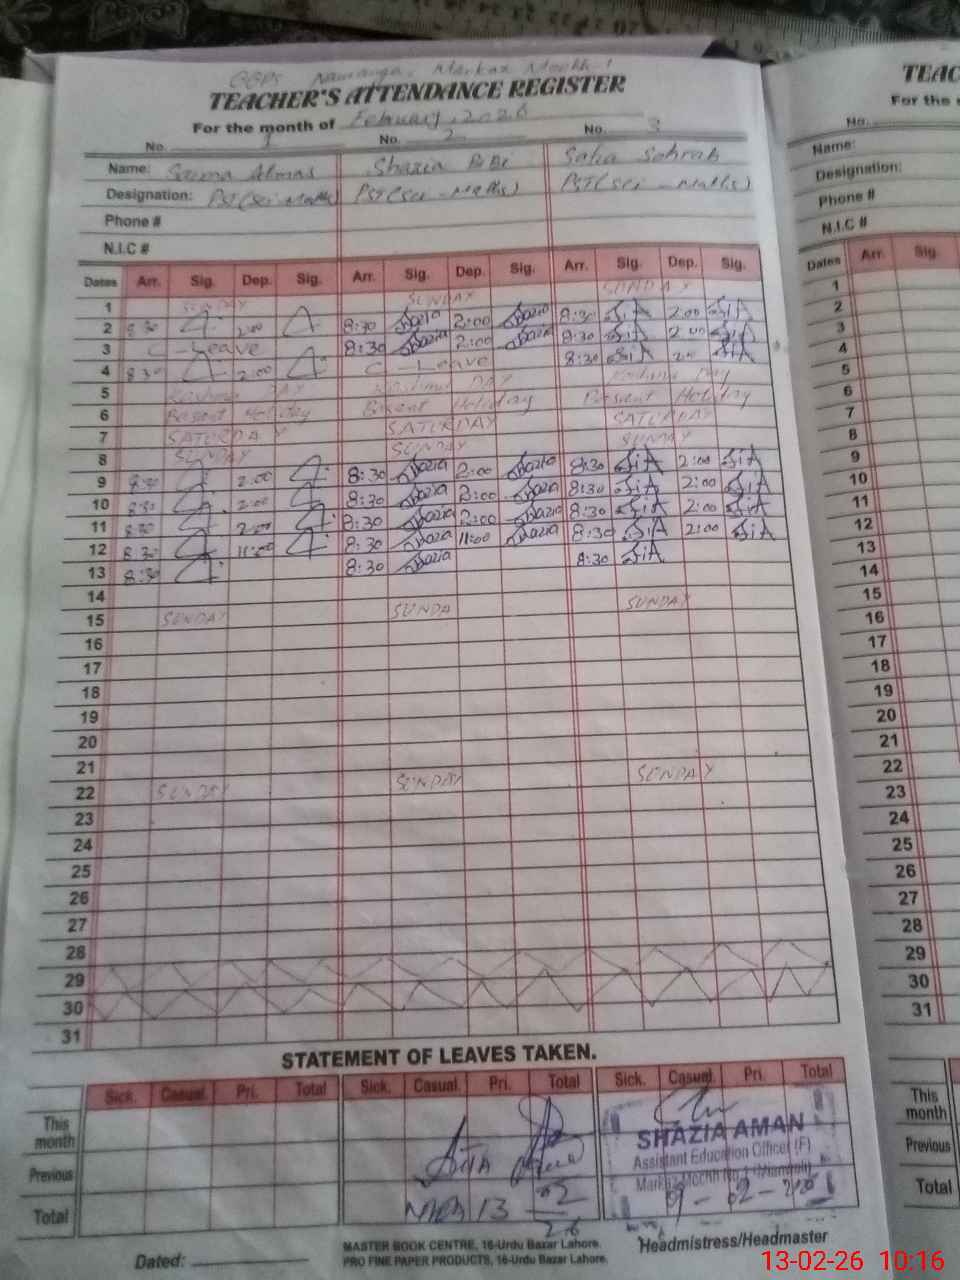 GGPS Markaz Mochh 1
TEACHER'S ATTENDANCE REGISTER
For the month of February, 2026
No. 1 No. 2 No. 3
Name: Saima Almas Shazia BiBi Safia Sohrab
Designation: PST(Sci-Maths) PST(Sci-Maths) PST(Sci-Maths)
Phone #
N.I.C #
Dates Arr. Sig. Dep. Sig. Arr. Sig. Dep. Sig. Arr. Sig. Dep. Sig.
1 SUNDAY SUNDAY SUNDAY
2 8:30 2:00 8:30 Shazia 2:00 Shazia 8:30 2:00
3 C-Leave 8:30 Shazia 2:00 Shazia 8:30 2:00
4 8:30 2:00 C-Leave 8:30 2:00
5 Kashmir DAY Kashmir DAY Kashmir Day
6 Basant Holiday Basant Holiday Basant Holiday
7 SATURDAY SATURDAY SATURDAY
8 SUNDAY SUNDAY SUNDAY
9 8:30 2:00 8:30 Shazia 2:00 Shazia 8:30 2:00
10 8:30 2:00 8:30 Shazia 2:00 Shazia 8:30 2:00
11 8:30 2:00 8:30 Shazia 2:00 Shazia 8:30 2:00
12 8:30 11:00 8:30 Shazia 11:00 Shazia 8:30 2:00
13 8:30 8:30 Shazia 8:30
14
15 SUNDAY SUNDA SUNDAY
16
17
18
19
20
21
22 SUNDAY SUNDAY SUNDAY
23
24
25
26
27
28
29
30
31
STATEMENT OF LEAVES TAKEN.
Sick. Casual. Pri. Total Sick. Casual. Pri. Total Sick. Casual. Pri. Total
This month
Previous
Total
13
02
26
SHAZIA AMAN
Assistant Education Officer (F)
Markaz Mochh No.1 (Mianwali)
Dated:
MASTER BOOK CENTRE, 16-Urdu Bazar Lahore.
PRO FINE PAPER PRODUCTS, 16-Urdu Bazar Lahore.
Headmistress/Headmaster
TEAC
For the
No.
Name:
Designation:
Phone #
N.I.C #
Dates Arr. Sig.
1
2
3
4
5
6
7
8
9
10
11
12
13
14
15
16
17
18
19
20
21
22
23
24
25
26
27
28
29
30
31
This month
Previous
Total
13-02-26 10:16